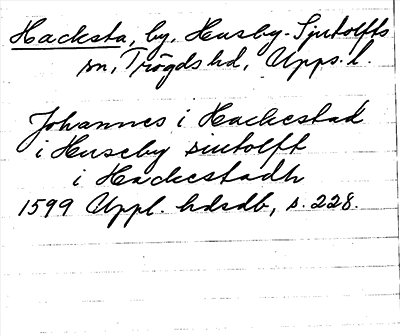 Hacksta, by, Husby-Sjutolfts
sn, Trögds hd, Upps. l.
Johannes i Hackestad
i Huseby siutolft
i Hackestadh
1599 Uppl. hdsdb, s. 228.